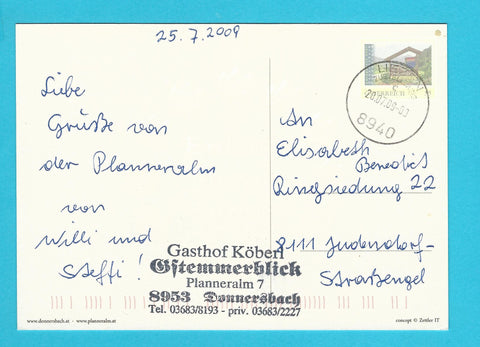 25.7.2009
Liebe
Grüße von
der Planneralm
von
Willi und
Steffi!
An
Elisabeth
Benedict
Ringsiedung 22
8111 Judendorf-
Straßengel
8940
Gasthof Köberl
Gstemmerblick
Planneralm 7
8953 Donnersbach
Tel. 03683/8193 - priv. 03683/2227
www.donnersbach.at - www.planneralm.at
concept © Zettler IT